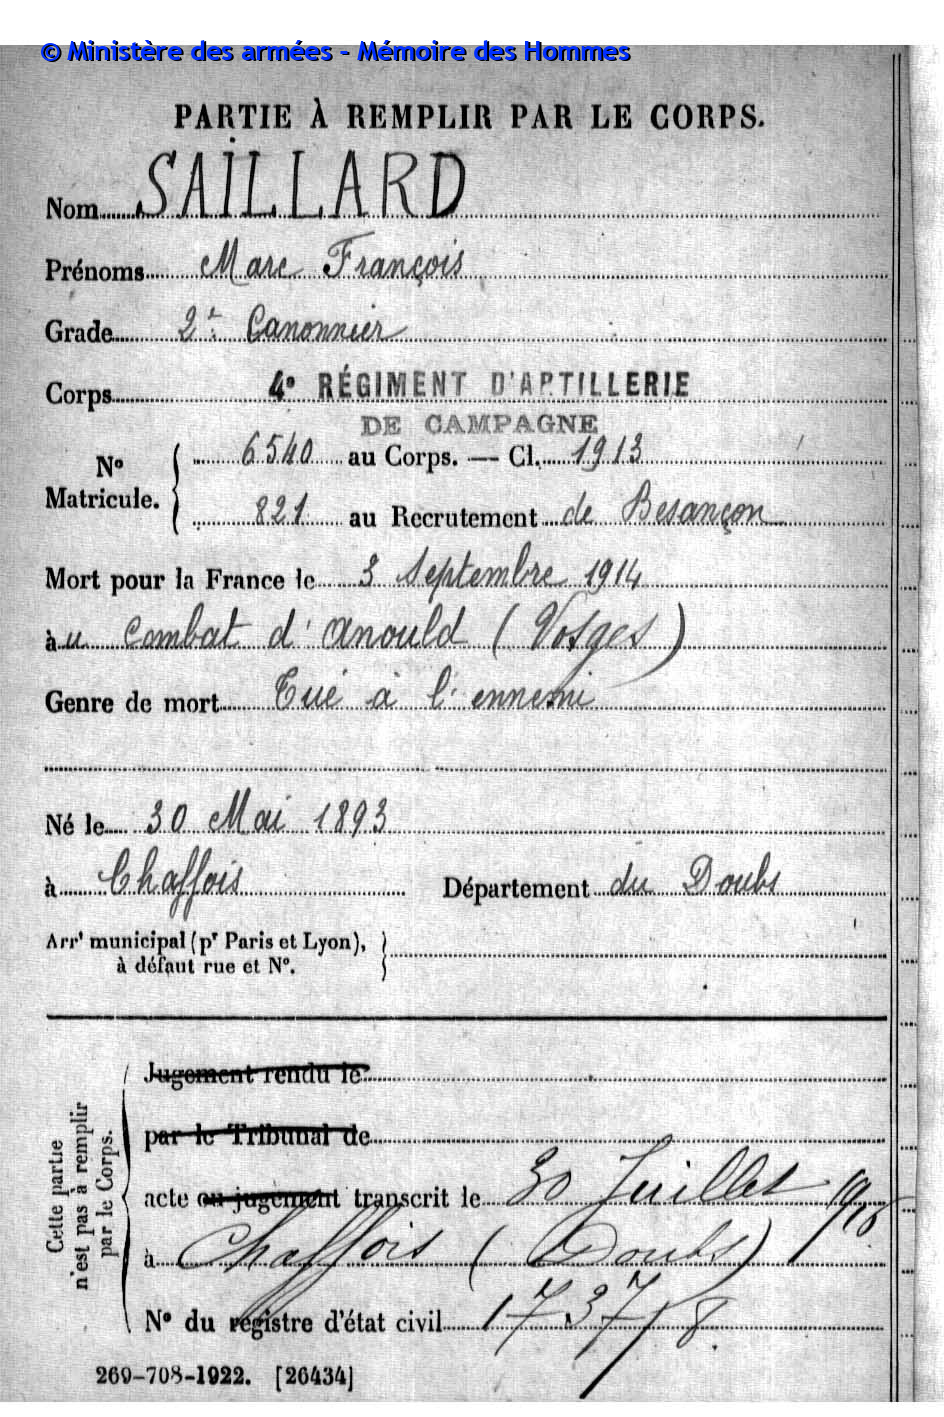 © Ministère des armées - Mémoire des Hommes
PARTIE À REMPLIR PAR LE CORPS.
Nom SAILLARD
Prénoms Marc François
Grade 2e Canonnier
Corps 4e RÉGIMENT D'ARTILLERIE
DE CAMPAGNE
No Matricule. 6540 au Corps. — Cl. 1913
821 au Recrutement de Besançon
Mort pour la France le 3 Septembre 1914
à u Combat d'Anould (Vosges)
Genre de mort Tué à l'ennemi
Né le 30 Mai 1893
à Chaffois Département du Doubs
Arrt municipal (pr Paris et Lyon),
à défaut rue et No.
Cette partie
n'est pas à remplir
par le Corps.
Jugement rendu le
par le Tribunal de
acte ou jugement transcrit le 30 Juillet 1916
à Chaffois (Doubs)
No du registre d'état civil 1737/8.
269-708-1922. [26434]